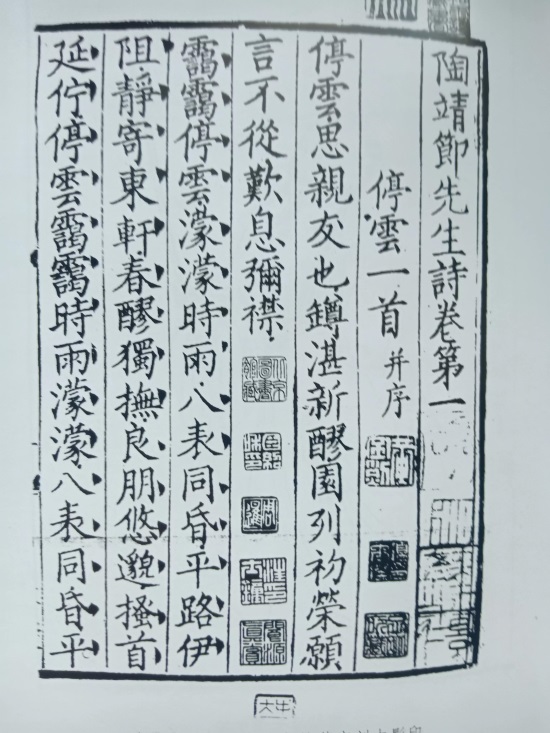 陶靖節先生詩卷第一
停雲一首并序
停雲思親友也罇湛新醪園列初榮願
言不從歎息彌襟
靄靄停雲濛濛時雨八表同昏平路伊
阻靜寄東軒春醪獨撫良朋悠邈搔首
延佇停雲靄靄時雨濛濛八表同昏平